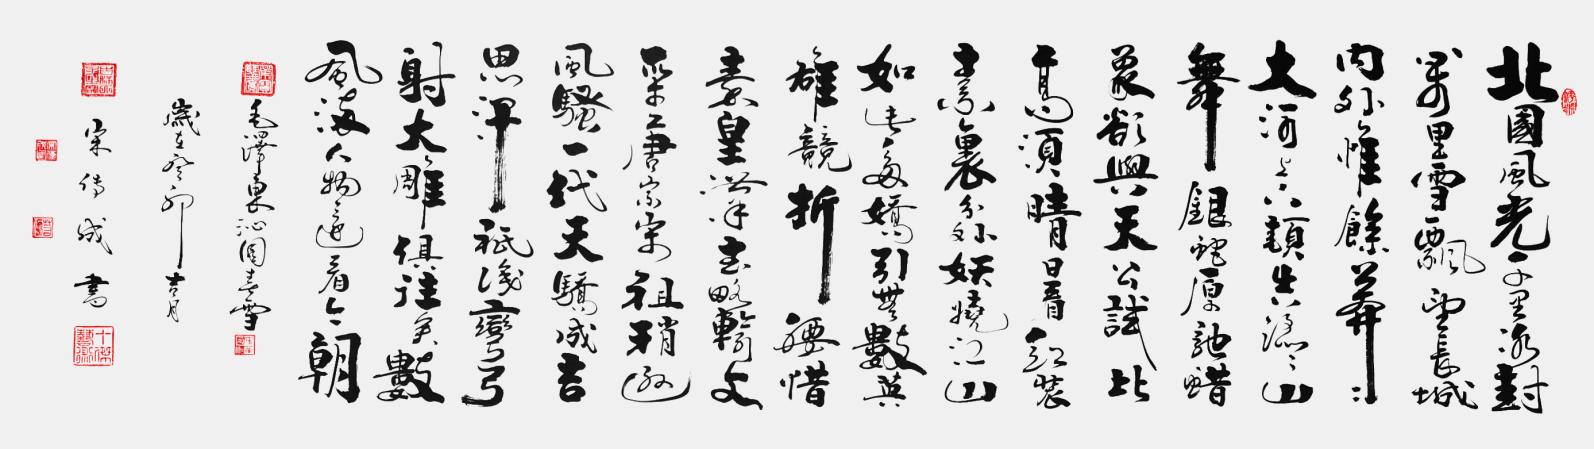 北國風光千里冰封
萬里雪飄望長城
内外惟餘莽〻
大河上下頓失滔〻山
舞銀蛇原馳蜡
象欲與天公試比
高須晴日看紅裝
素裹分外妖嬈江山
如此多嬌引無數英
雄競折腰惜
秦皇漢武略輸文
采唐宗宋祖稍遜
風騷一代天驕成吉
思汗祇識彎弓
射大雕俱往矣數
風流人物還看今朝
毛澤東沁園春雪
歲在癸卯吉月
宋傳成書